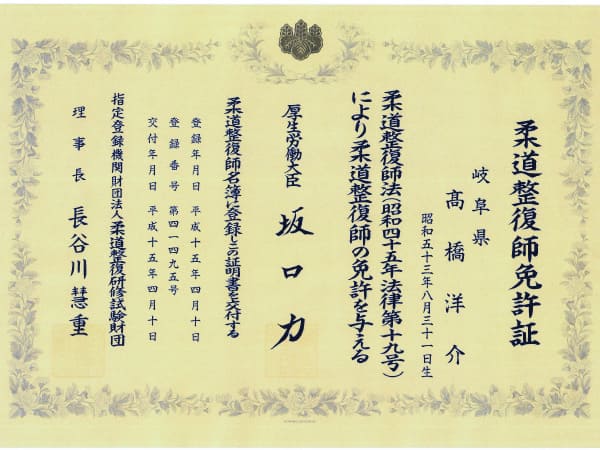 柔道整復師免許証
岐阜県
髙橋洋介
昭和五十三年八月三十一日生
柔道整復師法(昭和四十五年法律第十九号)
により柔道整復師の免許を与える
厚生労働大臣 坂口力
柔道整復師名簿に登録しこの証明書を交付する
登録年月日 平成十五年四月十日
登録番号 第四一四九五号
交付年月日 平成十五年四月十日
指定登録機関財団法人柔道整復研修試験財団
理事長 長谷川慧重